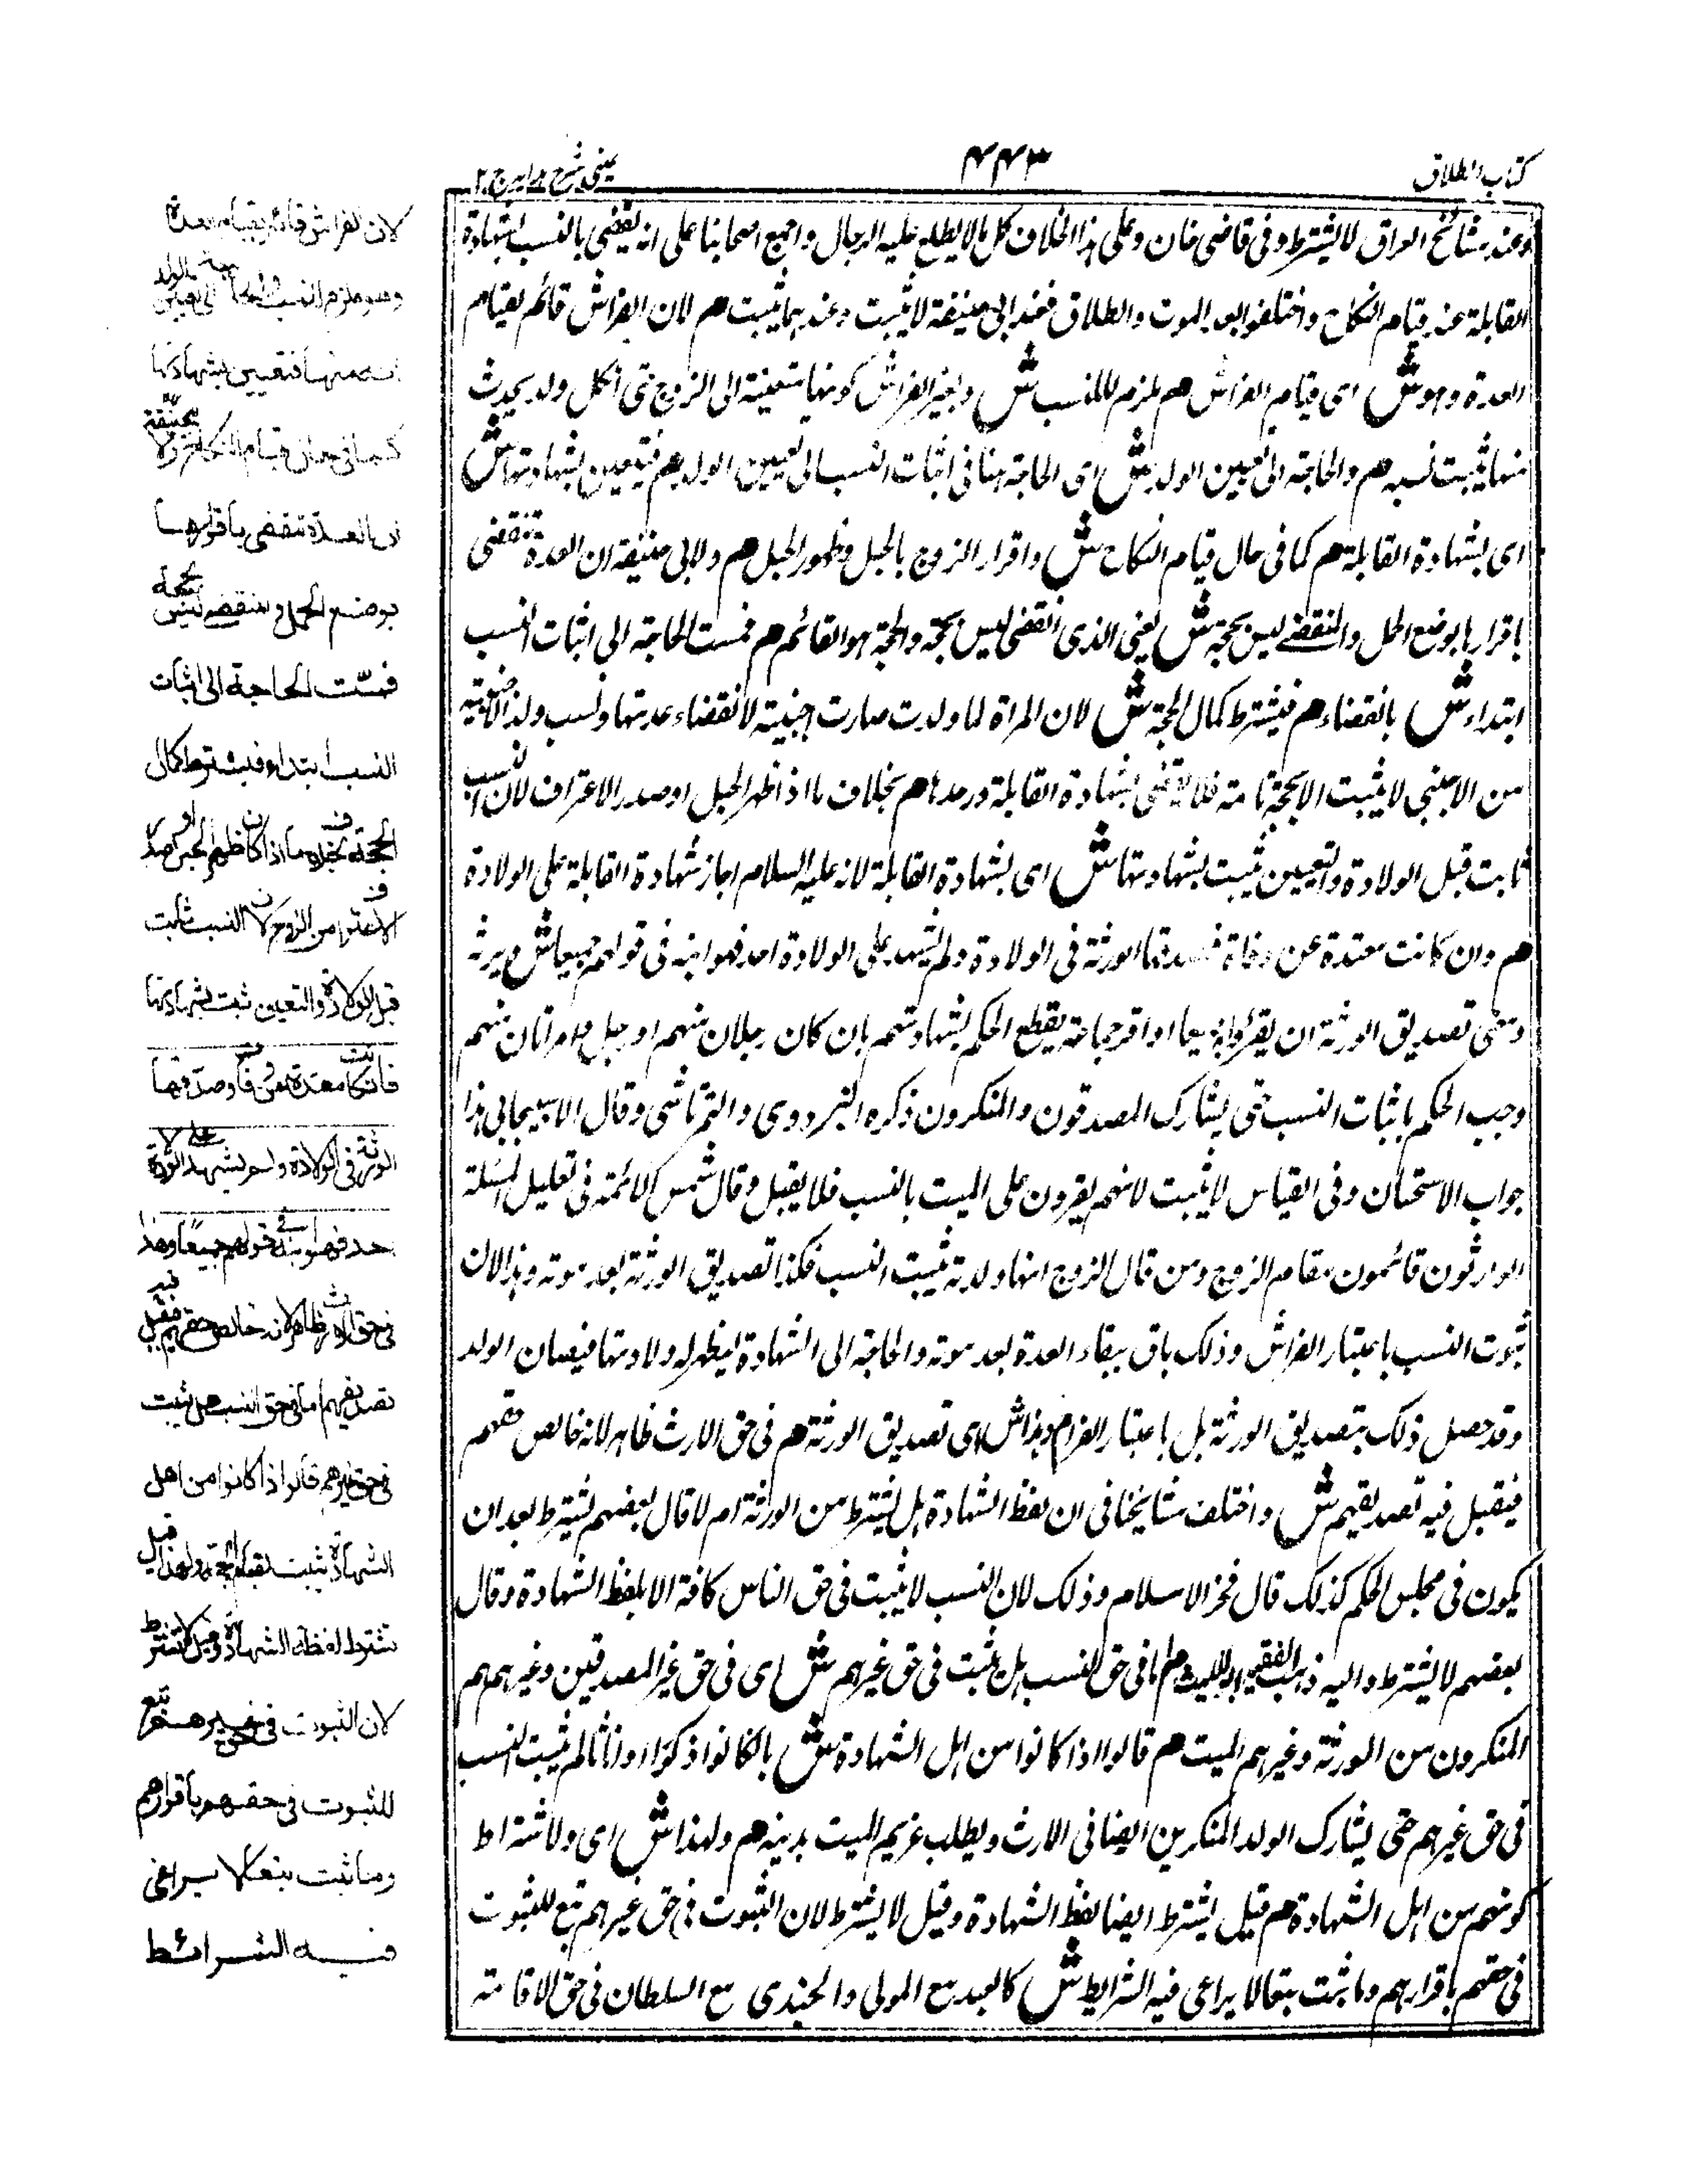 كتاب الطلاق
٤٤٣
عينى شرح هدايه ج ٢
وعند مشائخ العراق لا يشترط وفى قاضى خان وعلى هذا الخلاف كل ما لا يطلع عليه الرجال واجمع اصحابنا على انه يقضى بالنسب بشهادة
القابلة عند قيام النكاح واختلفوا بعد الموت والطلاق فعند ابى حنيفة لا يثبت وعندهما يثبت هم لان الفراش قائم بقيام
العدة وهو ش اى قيام الفراش هم ملزم للنسب ش ويعنى الفراش كونها متعينة الى الزوج حتى ان كل ولد يحدث
منها يثبت نسبه هم والحاجة الى تعيين الولد ش اى الحاجة هنا فى اثبات النسب الى تعيين الولد هم فيتعين بشهادتها ش
اى بشهادة القابلة هم كما فى حال قيام النكاح ش واقرار الزوج بالحبل وظهور الحبل هم ولابى حنيفة ان العدة تنقضى
باقرارها بوضع الحمل والمنقضى ليس بحجة ش يعنى الذى انقضى ليس بحجة والحجة هو القائم هم فمست الحاجة الى اثبات النسب
ابتداء ش بانقضاء هم فيشترط كمال الحجة ش لان المراة لما ولدت صارت اجنبية لانقضاء عدتها ونسب ولد الاجنبية
من الاجنبى لا يثبت الا بحجة تامة فلا يقضى بشهادة القابلة وحدها هم بخلاف ما اذا ظهر الحبل او صدر الاعتراف لان النسب
ثابت قبل الولادة والتعيين يثبت بشهادتها ش اى بشهادة القابلة لانه عليه السلام اجاز شهادة القابلة على الولادة
هم وان كانت معتدة عن وفاة فصدقها الورثة فى الولادة ولم يشهد على الولادة احد فهو ابنه فى قولهم جميعا ش ويرثه
ومعنى تصديق الورثة ان يقروا جميعا او اقر جماعة يقطع الحكم بشهادتهم بان كان رجلان منهم او رجل وامراتان منهم
وجب الحكم باثبات النسب حتى يشارك المصدقون والمنكرون ذكره البزدوى والتمرتاشى وقال الاسبيجابى هذا
جواب الاستحسان وفى القياس لا يثبت لانهم يقرون على الميت بالنسب فلا يقبل وقال شمس الائمة فى تعليل المسئلة
الوارثون قائمون مقام الزوج ومن قال الزوج انها ولدته يثبت النسب فكذا تصديق الورثة بعد موته وهذا لان
ثبوت النسب باعتبار الفراش وذلك باق ببقاء العدة بعد موته والحاجة الى الشهادة ليظهر له ولادتها فيصان الولد
وقد حصل ذلك بتصديق الورثة بل باعتبار الفراش هم وهذا ش اى تصديق الورثة هم فى حق الارث ظاهر لانه خالص حقهم
فيقبل فيه تصديقهم ش واختلف مشايخنا فى ان لفظ الشهادة هل يشترط من الورثة ام لا قال بعضهم يشترط بعد ان
يكون فى مجلس الحكم كذلك قال فخر الاسلام وذلك لان النسب لا يثبت فى حق الناس كافة الا بلفظ الشهادة وقال
بعضهم لا يشترط واليه ذهب الفقيه ابو الليث هم اما فى حق النسب هل يثبت فى حق غيرهم ش اى فى حق غير المصدقين وغيرهم هم
المنكرون من الورثة وغيرهم الميت هم قالوا اذا كانوا من اهل الشهادة ش بان كانوا ذكورا او اناثا لم يثبت النسب
فى حق غيرهم حتى يشارك الولد المنكرين ايضا فى الارث ويطلب غريم الميت بدينه هم ولهذا ش اى ولاشتراط
كونهم من اهل الشهادة هم قيل يشترط ايضا لفظ الشهادة وقيل لا يشترط لان الثبوت فى حق غيرهم تبع للثبوت
فى حقهم باقرارهم وما ثبت تبعا لا يراعى فيه الشرايط ش كالعبد مع المولى والجندى مع السلطان فى حق الاقامة
لان الفراش قائم بقيام العدة
وهو ملزم النسب والحاجة الى تعيين الولد
انه منها فتعيين بشهادتها
كما فى حال قيام النكاح ولابى حنيفة
ان العدة تنقضى باقرارها
بوضع الحمل والمنقضى ليس بحجة
فمست الحاجة الى اثبات
النسب ابتداء فيشترط كمال
الحجة بخلاف ما اذا كان ظهر الحبل او صدر
الاعتراف من الزوج لان النسب ثابت
قبل الولادة والتعين ثبت بشهادتها
فان كانت معتدة عن وفاة وصدقها
الورثة فى الولادة ولم يشهد على الولادة
احد فهو ابنه فى قولهم جميعا وهذا
فى حق الارث ظاهر لانه خالص حقهم فيقبل فيه
تصديقهم اما فى حق النسب هل يثبت
فى حق غيرهم قالوا اذا كانوا من اهل
الشهادة يثبت لقيام الحجة ولهذا قيل
تشترط لفظة الشهادة وقيل لا تشترط
لان الثبوت فى حق غيرهم تبع
للثبوت فى حقهم باقرارهم
وما ثبت تبعا لا يراعى
فيه الشرائط